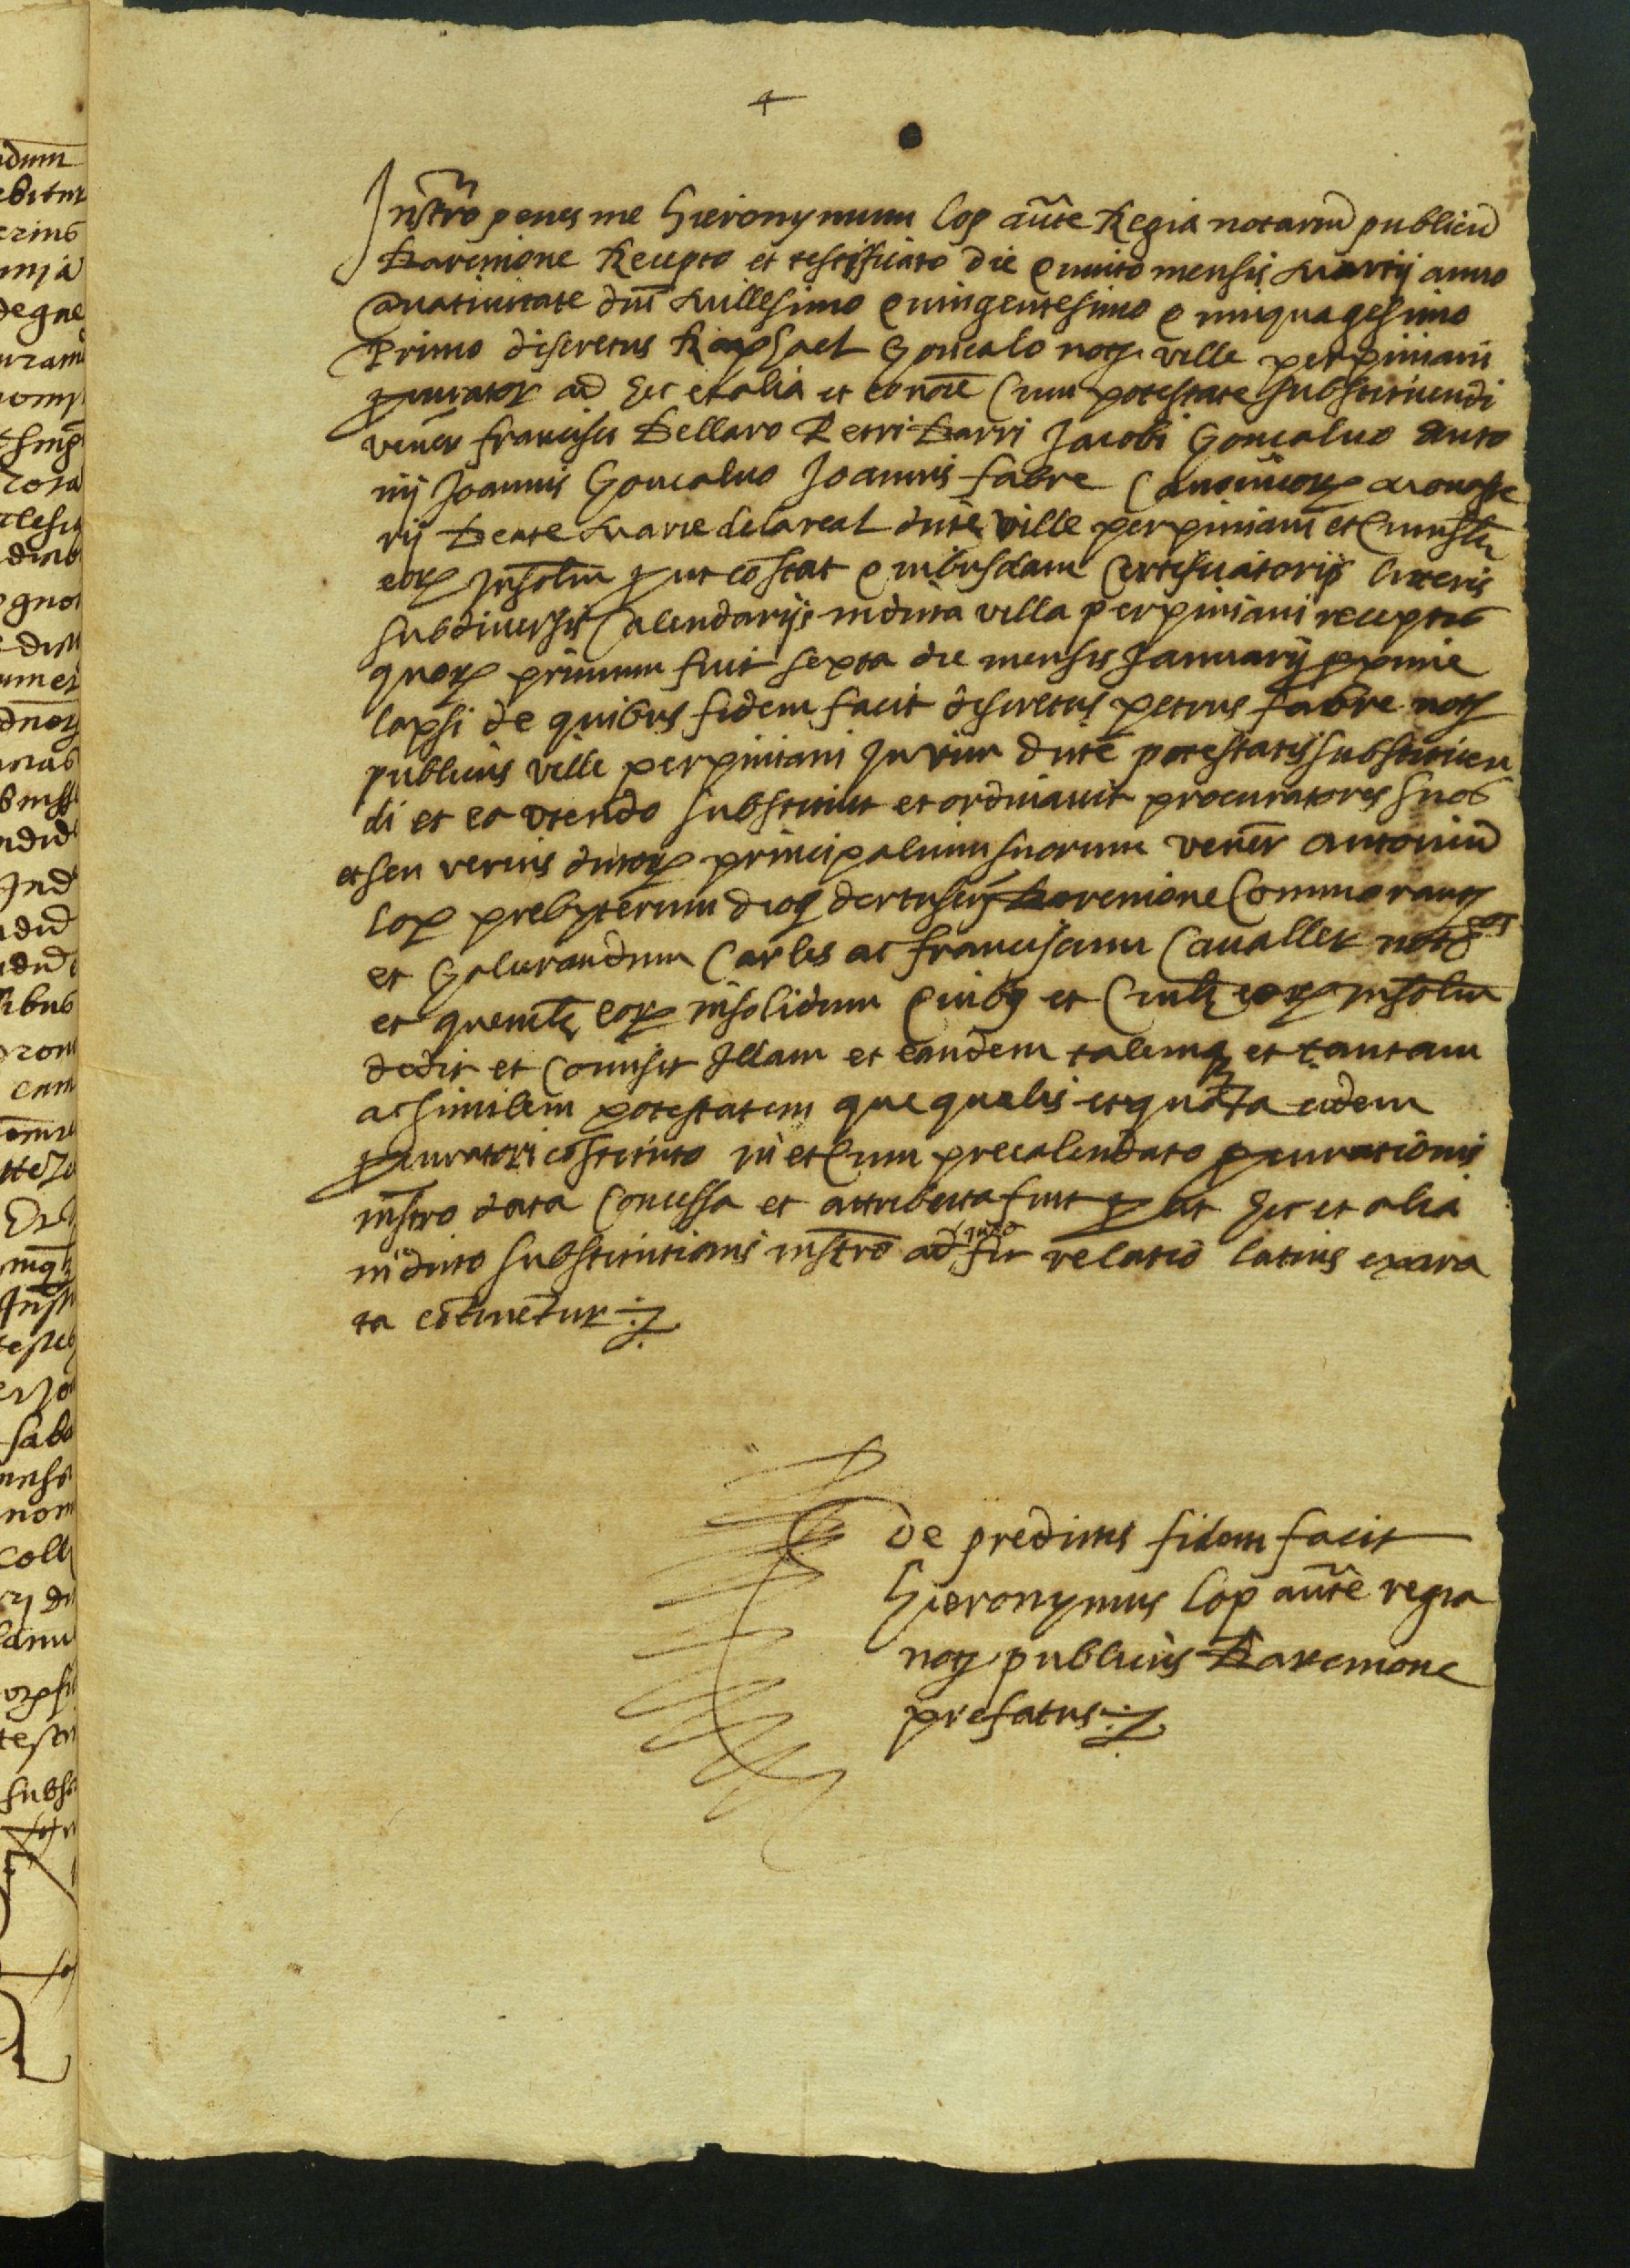 Instro penes me Hieronymum Lop aūte Regia notariū publicū
Barcinone Recepto et testificato die Quinto mensis Martij anno
a nativitate dnī Millesimo Quingentesimo Quinquagesimo
Primo discretus Raphael Goncalo noty ville perpiniani
procurator ad hec et alia et co noīe Cum potestate substituendi
venēr francisci Bellaro Petri Barri Jacobi Goncalvo Anto
nij Joannis Goncalvo Joannis fabre Canonicor monaste
rij Beate Marie de la real dicte ville perpiniani et Cuiuslī
eor Insolīm prout cōstat Quibusdam Certificatorijs literis
sub diversis Calendarijs in dicta villa perpiniani receptis
quor primum fuit sexta die mensis Januarij pxime
lapsi de quibus fidem facit discretus petrus fabre noty
publicus ville perpiniani In vim dicte potestatis substituen
di et ea utendo substituit et ordinavit procuratores suos
et seu verius dictor principalium suorum venēr Antoniū
Lop prebyterum dioc dertuseñ Barcinone Commorang
et Galcerandum Carles ac franciscum Cavaller notos
et quemlī eor insolidum Quibus et Cuilī eor insolīm
dedit et Comisit Illam et eandem talemq et tantam
ac similem potestatem que qualis et quāta eidem
procuratori cōstituto in et Cum precalendato procurationis
instro data Concessa et attributa fuit prout hec et alia
in dicto substitutionis instrō ad quod fit relatio latius exara
ta cōtinetur
De predictis fidem facit
Hieronymus Lop aūte regia
noty publicus Barcinone
prefatus